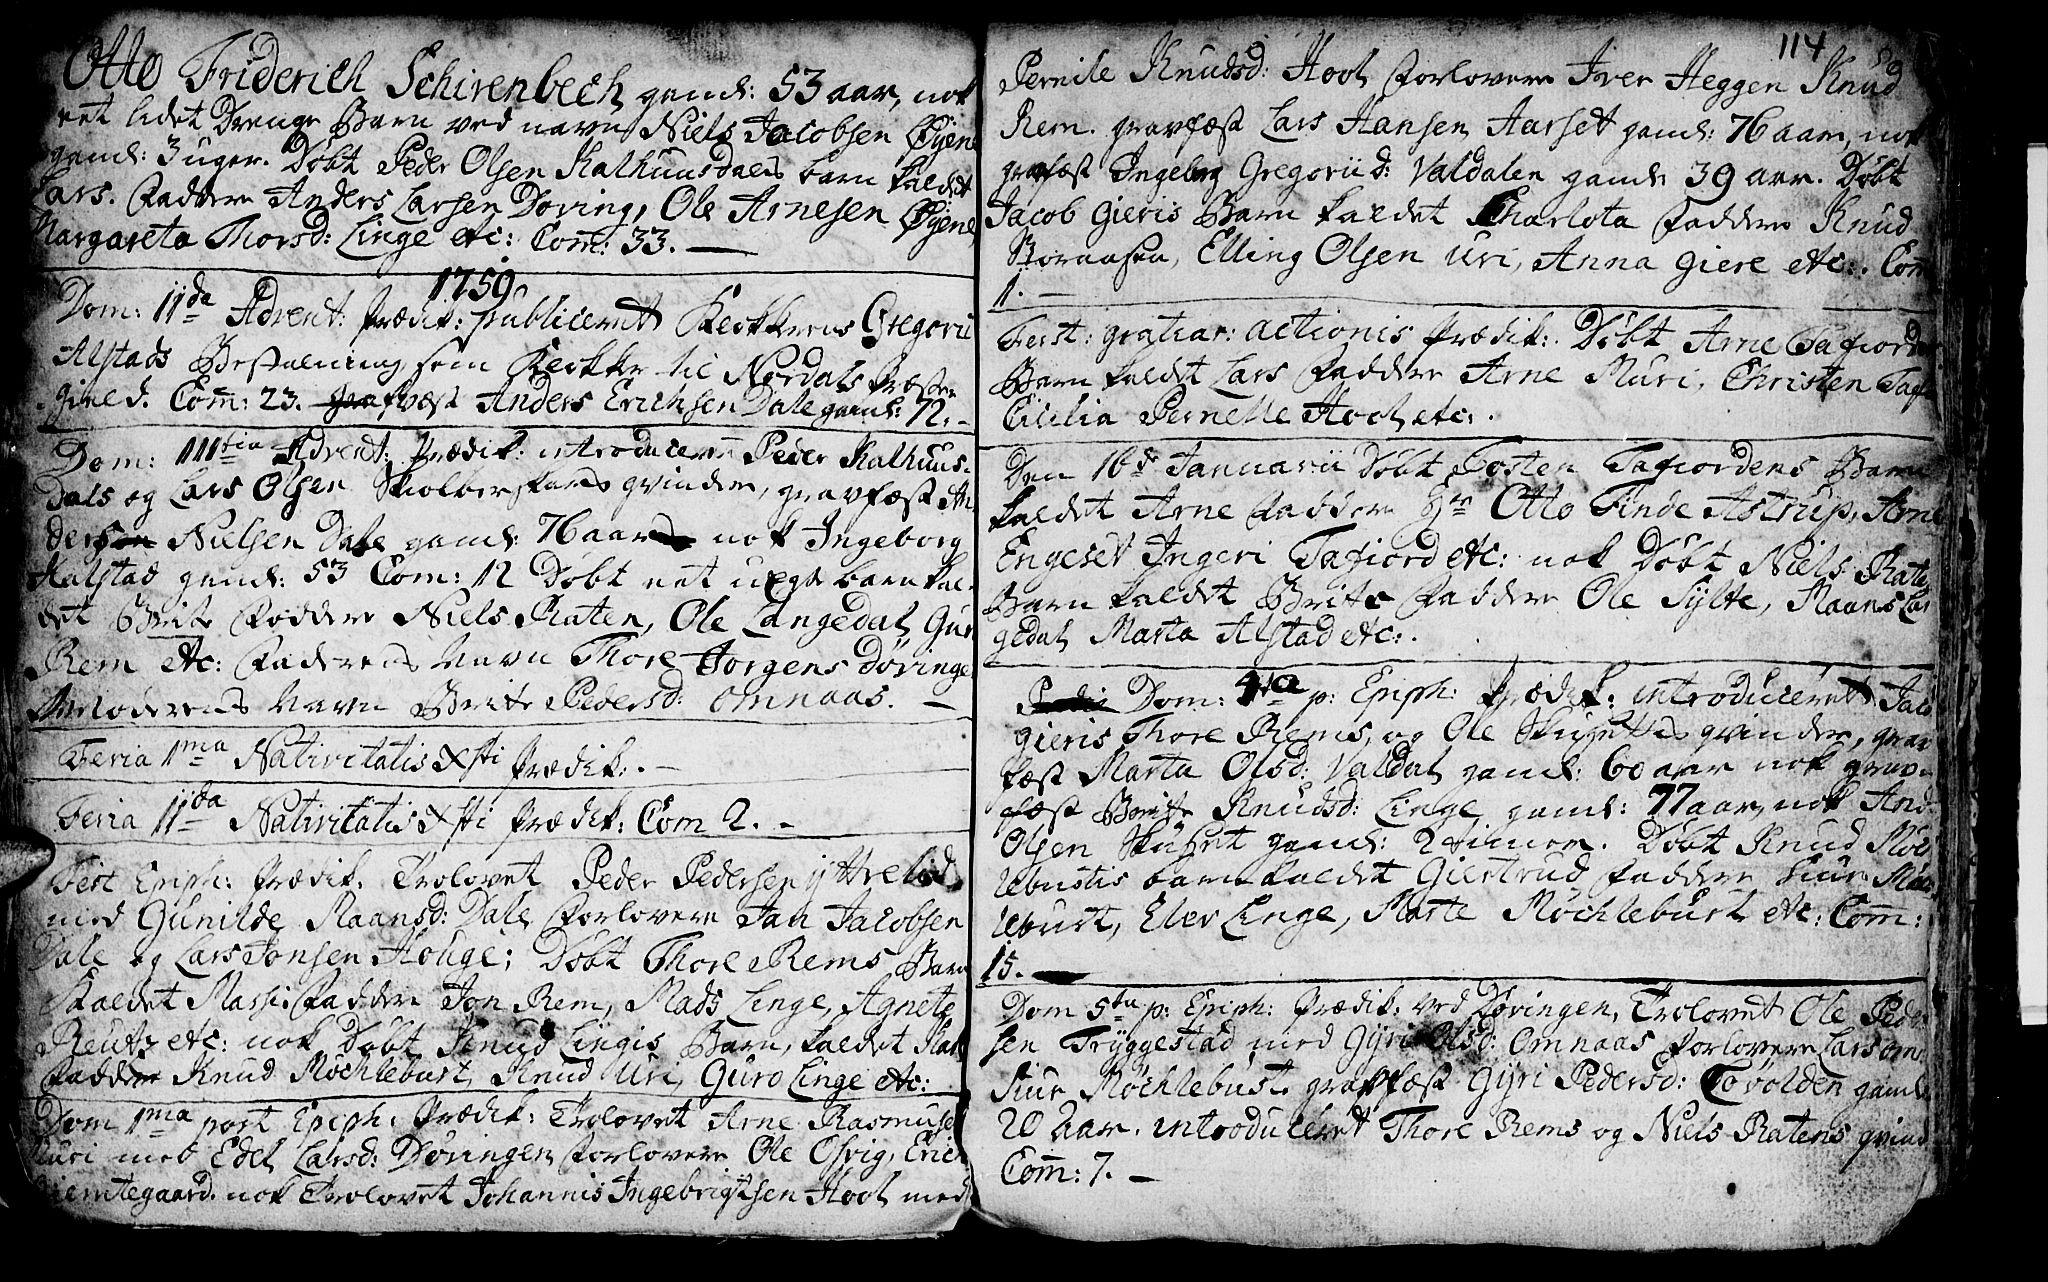 Otto Friderich Schirenbech gaml: 53 aar, nok
eet lidet Drenge Barn ved navn Niels Jacobsen Øjene
gaml: 3 uger. Døbt Peder Olsen Kalhuusdals barn kaldet
Lars. Faddere Anders Larsen Døving, Ole Arnesen Øjene,
Margareta Thorsd: Linge etc: Com: 33. —
1759.
Dom: IIda Advent: Prædik: publiceret Klokkerens Gregorii
Alstads Bestalning som Klokker til Nordals Præste-
gield. Com: 23. gravfæst Anders Erichsen Dale gaml: 72. -
Dom: IIItia Advent: Prædik: introduceret Peder Kalhuus-
dals og Lars Olsen qvinder, gravfæst An
ders Nielsen Dale gaml: 76 aar nok Ingeborg
Halstad gaml: 53 Com: 12 Døbt eet uegte barn kal-
det Brite Faddere Niels Raten, Ole Langedal, Guri
Rem etc: Faderens Navn Thore Jorgens Døvinge
Moderens Navn Brite Pedersd: Omnaas. —
Feria 1ma Nativitatis Xsti Prædik: . —
Feria IIda Nativitatis Xsti Prædik: Com 2. -
Fest Epiph: Prædik. Trolovet Peder Pedersen yttrelid
med Gunilde Maansd: Dale Forlovere Jan Jacobsen
Dale og Lars Jonsen Houge; Døbt Thore Rems Barn
Kaldet Faddere Jon Rem, Mads Linge, Agnete
Reutz etc: nok Døbt Knud Lingis Barn, kaldet
Faddere Knud Møchlebust, Knud Uri, Guro Linge etc:
Dom 1ma post Epiph: Prædik: Trolovet Arne Rasmusen
Muri med Edel Larsd: Døvingen Forlovere Ole Osvig, Erich
nok Trolovet Johannis Ingebrigtsen Hool med
114
Pernile Knudsd: Hool Forlovere Iver Heggen Knud
Rem. gravfæst Lars Hansen Aarset gaml: 76 aar, nok
gravfæst Ingeborg Gregorii d: Valdalen gaml: 39 aar. Døbt
Jacob Gieriis Barn kaldet Charlota Faddere Knud
Elling Olsen Uri, Anna Giere etc: . Com
1. —
Fest: gratiar: actionis Prædik: Døbt Arne Tafiordens
Barn kaldet Lars Faddere Arne Muri, Christen Tafi
Cicilia Pernelle Hool etc: .
Den 16de Januarii Døbt Tosten Tafiordens Barn
kaldet Arne Faddere Hr Otto Finde Astrup, Arne
Engeset Ingeri Tafiord etc: nok Døbt Niels Rate
Barn kaldet Brite Faddere Ole Sylte, Maans Lan
gedal, Marta Alstad etc: .
Dom: 4ta p: Epiph: Prædik: introduceret Jaco
Gieris Thore Rems, og Ole qvinder, grav
fæst Marta Olsd: Valdal gaml: 60 aar nok grav-
fæst Brite Knudsd: Linge gaml: 77 aar, nok And
Olsen gaml: 2 timer. Døbt Knud Møch
lebustis barn kaldet Giertrud Faddere Siur Møch
lebust, Elev Linge, Marte Møchlebust etc: Com:
15. —
Dom 5ta p: Epiph: Prædik: ved Døvingen, Trolovet Ole Peder
sen Tryggestad med Gyri Olsd: Omnaas Forlovere Lars Omn
Siur Møchlebust. gravfæst Gyri Pedersd: gaml:
20 Aar. introduceret Thore Rems og Niels Ratens qvind
Com: 7. —